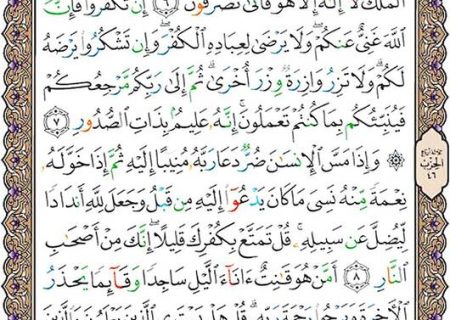 ٱلْمُلْكُ لَآ إِلَٰهَ إِلَّا هُوَ فَأَنَّىٰ تُصْرَفُونَ ٦ إِن تَكْفُرُوا۟ فَإِنَّ
ٱللَّهَ غَنِىٌّ عَنكُمْ وَلَا يَرْضَىٰ لِعِبَادِهِ ٱلْكُفْرَ وَإِن تَشْكُرُوا۟ يَرْضَهُ
لَكُمْ وَلَا تَزِرُ وَازِرَةٌ وِزْرَ أُخْرَىٰ ثُمَّ إِلَىٰ رَبِّكُم مَّرْجِعُكُمْ
فَيُنَبِّئُكُم بِمَا كُنتُمْ تَعْمَلُونَ إِنَّهُۥ عَلِيمٌۢ بِذَاتِ ٱلصُّدُورِ ٧
۞ وَإِذَا مَسَّ ٱلْإِنسَٰنَ ضُرٌّ دَعَا رَبَّهُۥ مُنِيبًا إِلَيْهِ ثُمَّ إِذَا خَوَّلَهُۥ
نِعْمَةً مِّنْهُ نَسِىَ مَا كَانَ يَدْعُوٓا۟ إِلَيْهِ مِن قَبْلُ وَجَعَلَ لِلَّهِ أَندَادًا
لِّيُضِلَّ عَن سَبِيلِهِۦ قُلْ تَمَتَّعْ بِكُفْرِكَ قَلِيلًا إِنَّكَ مِنْ أَصْحَٰبِ
ٱلنَّارِ ٨ أَمَّنْ هُوَ قَٰنِتٌ ءَانَآءَ ٱلَّيْلِ سَاجِدًا وَقَآئِمًا يَحْذَرُ
ٱلْءَاخِرَةَ وَيَرْجُوا۟ رَحْمَةَ رَبِّهِۦ قُلْ هَلْ يَسْتَوِى ٱلَّذِينَ يَعْلَمُونَ وَٱلَّذِينَ
الحزب
٤٦